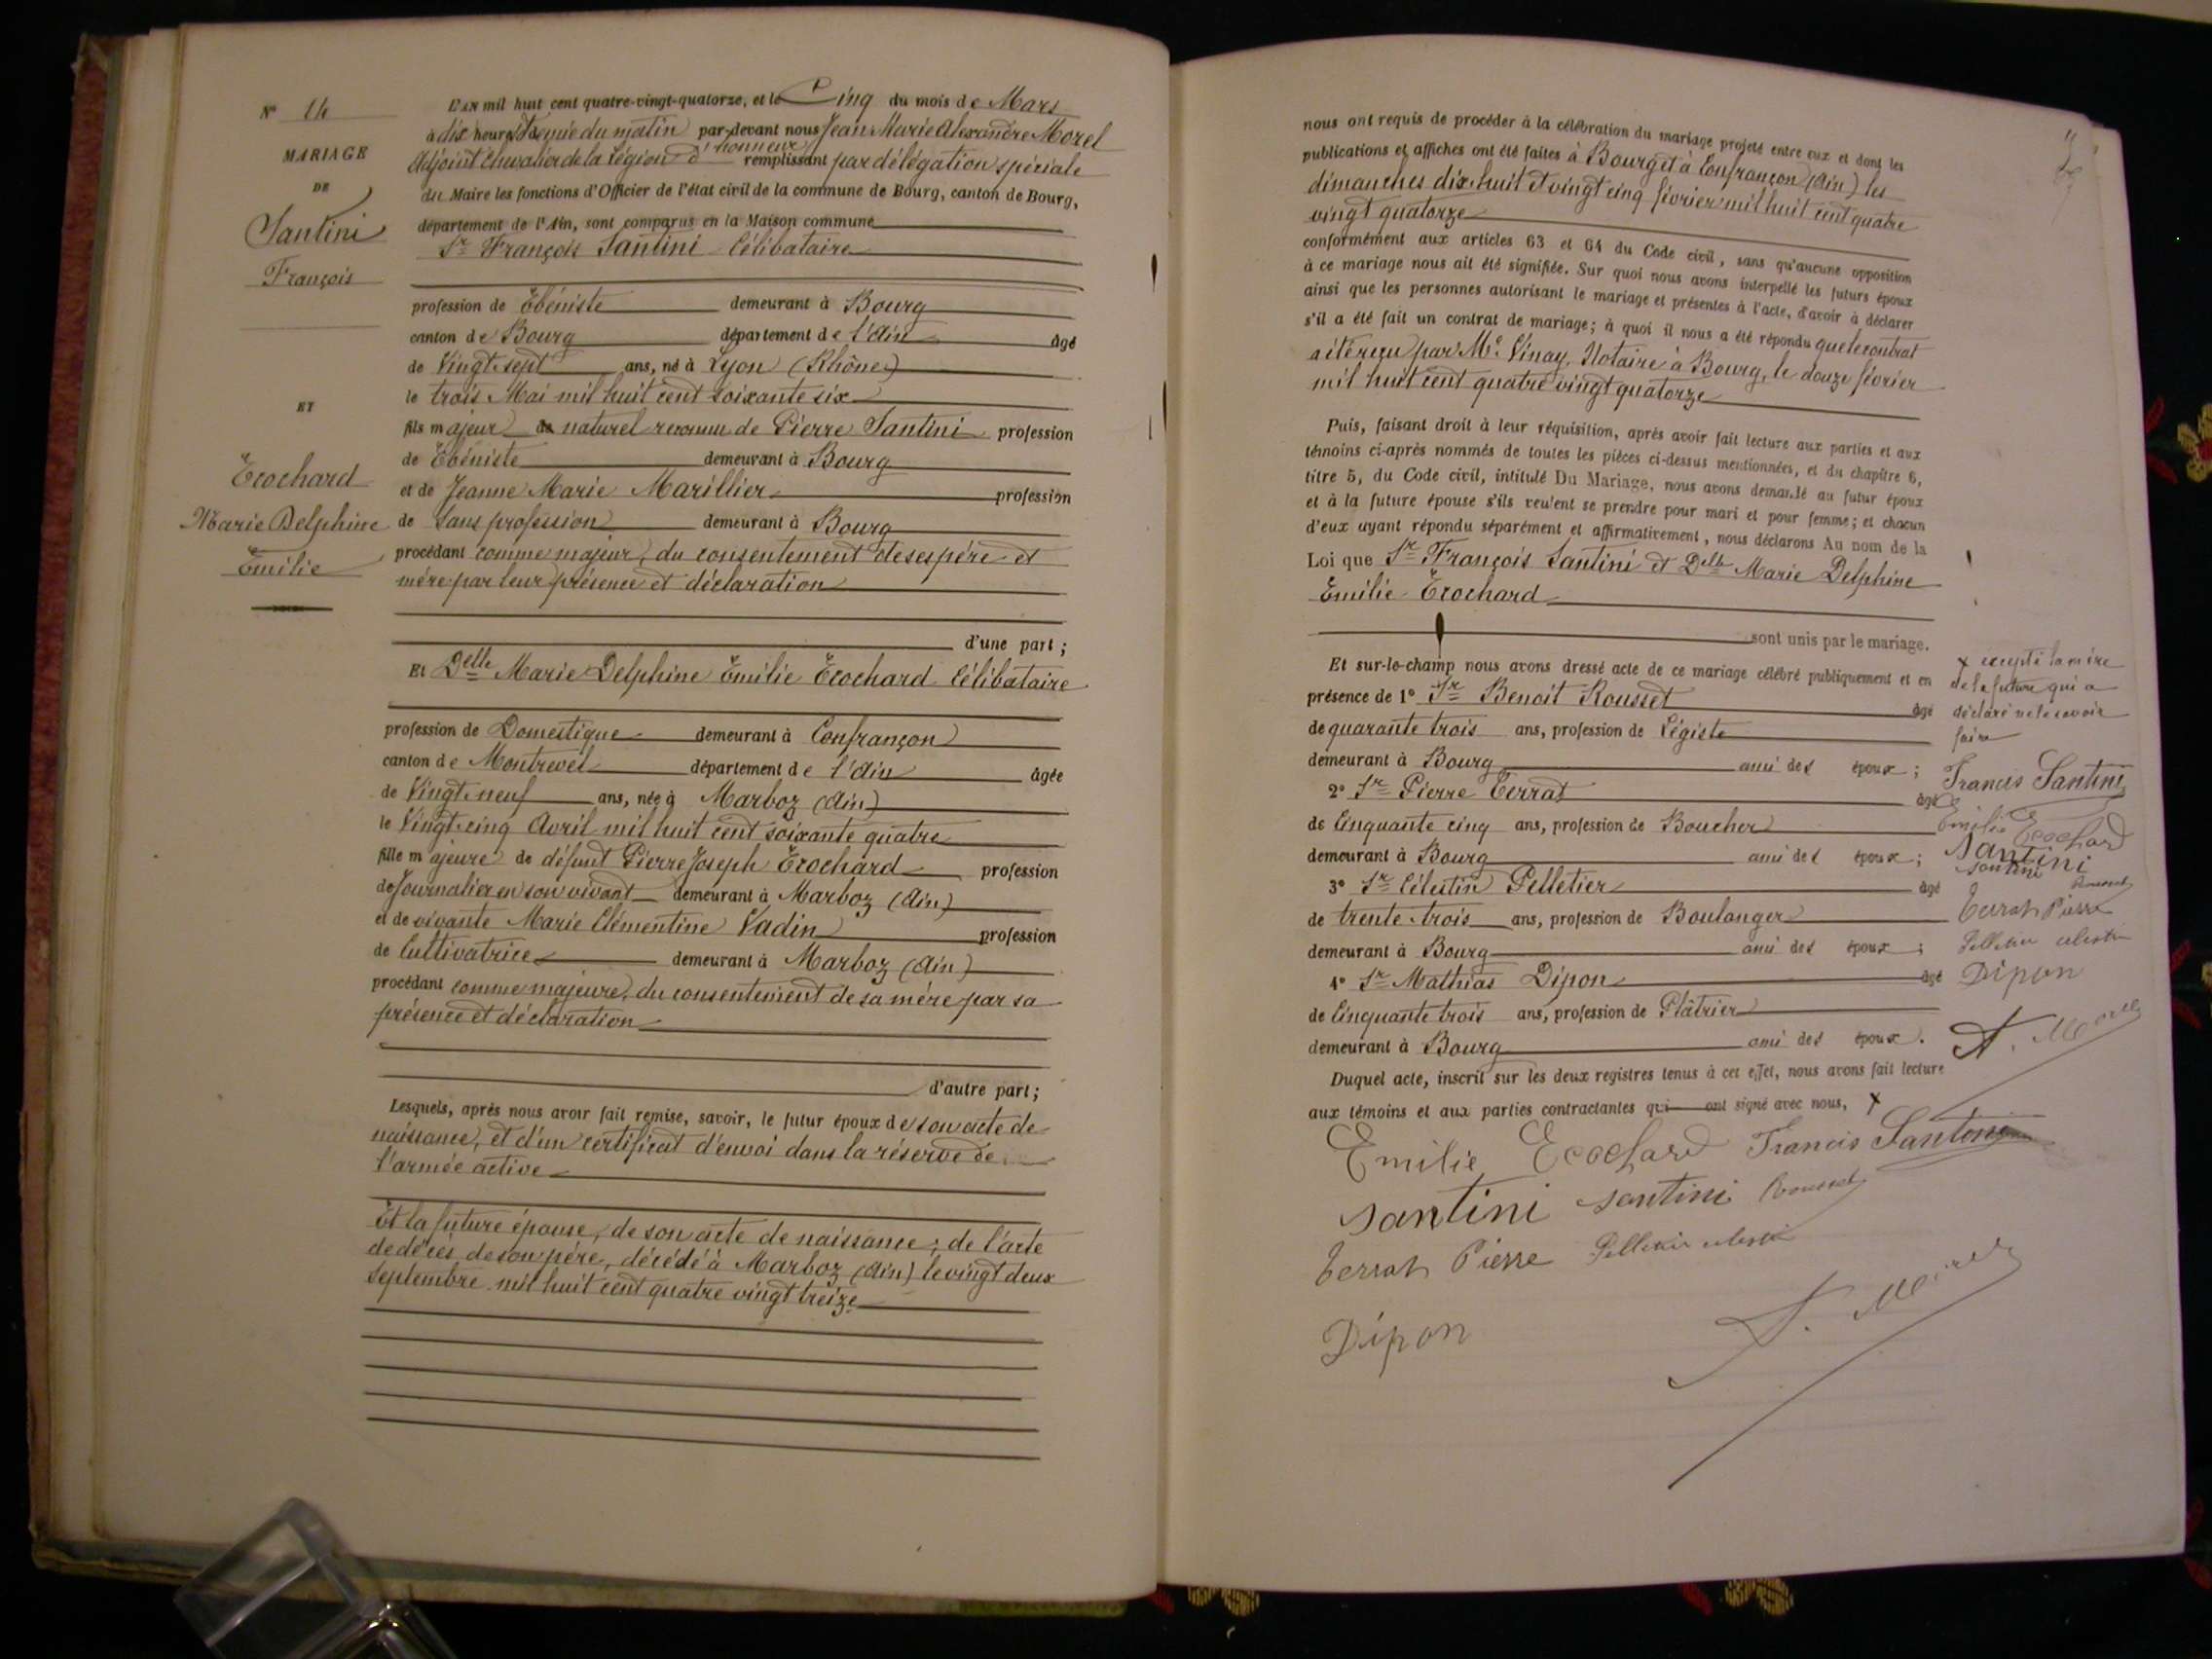 N° 14
MARIAGE
DE
Santini
François
ET
Ecochard
Marie Delphine
Emilie
L'AN mil huit cent quatre-vingt-quatorze, et le Cinq du mois de Mars
à dix heures et demie du matin par-devant nous Jean Marie Alexandre Morel
Adjoint Chevalier de la Légion d'honneur remplissant par délégation spéciale
du Maire les fonctions d'Officier de l'état civil de la commune de Bourg, canton de Bourg,
département de l'Ain, sont comparus en la Maison commune
Sr François Santini Célibataire
profession de Ebéniste demeurant à Bourg
canton de Bourg département de l'Ain âgé
de Vingt-sept ans, né à Lyon (Rhône)
le trois Mai mil huit cent soixante six
fils majeur naturel reconnu de Pierre Santini profession
de Ebéniste demeurant à Bourg
et de Jeanne Marie Marillier profession
de Sans profession demeurant à Bourg
procédant comme majeur, du consentement de ses père et
mère par leur présence et déclaration
d'une part ;
Et Delle Marie Delphine Emilie Ecochard Célibataire
profession de Domestique demeurant à Confrançon
canton de Montrevel département de l'Ain âgée
de Vingt-neuf ans, née à Marboz (Ain)
le Vingt-cinq Avril mil huit cent soixante quatre
fille majeure de défunt Pierre Joseph Ecochard profession
de Journalier en son vivant demeurant à Marboz (Ain)
et de vivante Marie Clémentine Vadin profession
de Cultivatrice demeurant à Marboz (Ain)
procédant comme majeure, du consentement de sa mère par sa
présence et déclaration
d'autre part ;
Lesquels, après nous avoir fait remise, savoir, le futur époux de son acte de
naissance, et d'un certificat d'envoi dans la réserve de
l'armée active
Et la future épouse, de son acte de naissance ; de l'acte
de décès de son père, décédé à Marboz (Ain) le vingt deux
Septembre mil huit cent quatre vingt treize
nous ont requis de procéder à la célébration du mariage projeté entre eux et dont les
publications et affiches ont été faites à Bourg et à Confrançon (Ain) les
dimanches dix-huit et vingt cinq février mil huit cent quatre
vingt quatorze
conformément aux articles 63 et 64 du Code civil, sans qu'aucune opposition
à ce mariage nous ait été signifiée. Sur quoi nous avons interpellé les futurs époux
ainsi que les personnes autorisant le mariage et présentes à l'acte, d'avoir à déclarer
s'il a été fait un contrat de mariage ; à quoi il nous a été répondu que le contrat
a été reçu par Me Vinay, Notaire à Bourg, le douze février
mil huit cent quatre vingt quatorze
Puis, faisant droit à leur réquisition, après avoir fait lecture aux parties et aux
témoins ci-après nommés de toutes les pièces ci-dessus mentionnées, et du chapitre 6,
titre 5, du Code civil, intitulé Du Mariage, nous avons demandé au futur époux
et à la future épouse s'ils veulent se prendre pour mari et pour femme ; et chacun
d'eux ayant répondu séparément et affirmativement, nous déclarons Au nom de la
Loi que Sr François Santini et Delle Marie Delphine
Emilie Ecochard
sont unis par le mariage.
Et sur-le-champ nous avons dressé acte de ce mariage célébré publiquement et en
présence de 1° Sr Benoit Rousset âgé
de quarante trois ans, profession de Légiste
demeurant à Bourg ami des époux ;
2° Sr Pierre Terrat âgé
de Cinquante cinq ans, profession de Boucher
demeurant à Bourg ami des époux ;
3° Sr Célestin Pelletier âgé
de trente-trois ans, profession de Boulanger
demeurant à Bourg ami des époux ;
4° Sr Mathias Dipon âgé
de Cinquante trois ans, profession de Plâtrier
demeurant à Bourg ami des époux.
Duquel acte, inscrit sur les deux registres tenus à cet effet, nous avons fait lecture
aux témoins et aux parties contractantes qui ont signé avec nous, x
Emilie Ecochard Francis Santini
Santini santini Rousset
Terrat Pierre Pelletier celestin
Dipon
A. Morel
x excepté la mère
de la future qui a
déclaré ne le savoir
faire
Francis Santini
Emilie Ecochard
Santini
santini
Rousset
Terrat Pierre
Pelletier celestin
Dipon
A. Morel